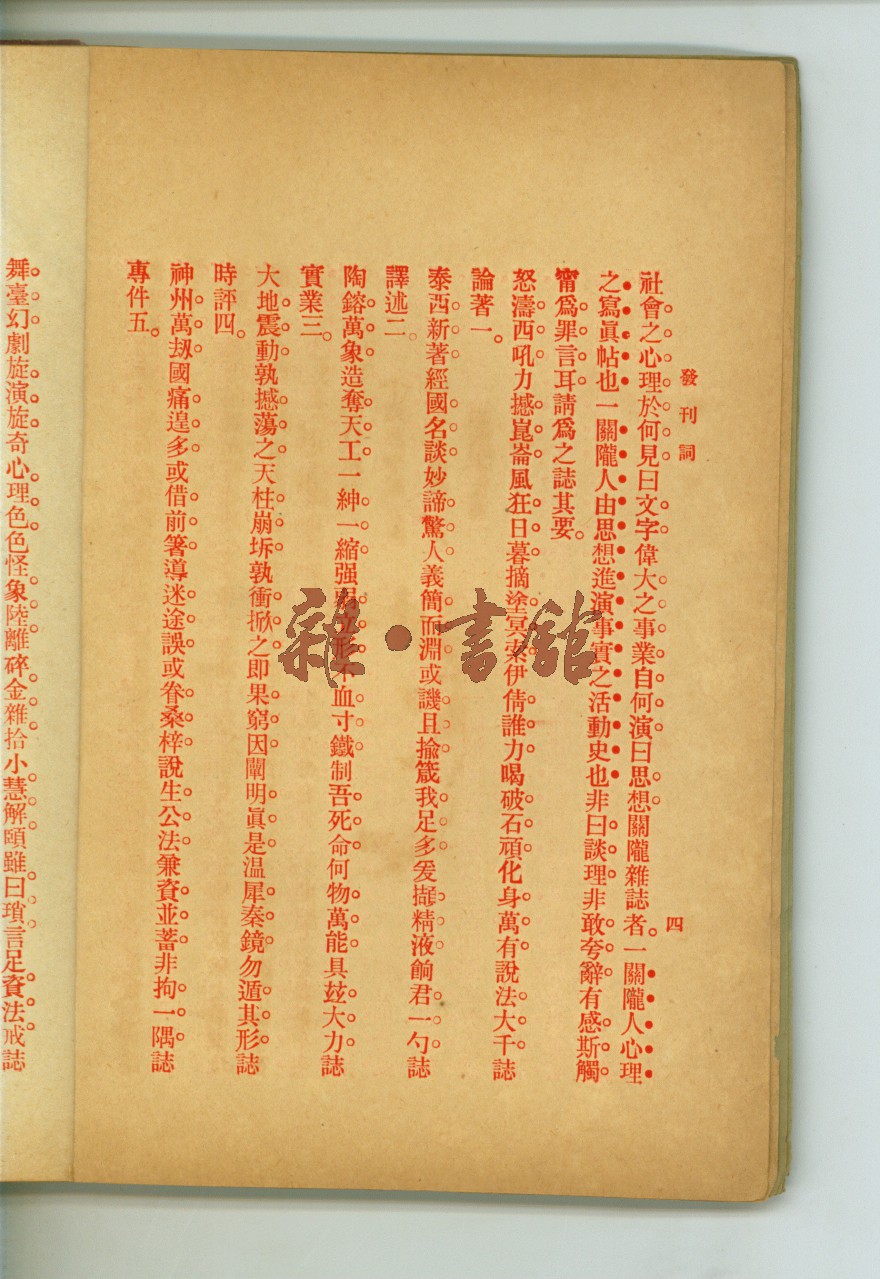 發刊詞
四
社會之心理於何見曰文字偉大之事業自何演曰思想關隴雜誌者。一關隴人心理
之寫眞帖也一關隴人由思想進演事實之活動史也非曰談理非敢夸辭有感斯觸
甯爲罪言耳請爲之誌其要。
怒濤西吼力撼崑崙風狂日暮摘塗冥索伊倩誰力喝破石頑化身萬有說法大千誌
論著一。
泰西新著經國名談妙諦驚人義簡而淵或譏且揄箴我足多爰擷精液餉君一勺誌
譯述二
陶鎔萬象造奪天工一紳一縮强弱立形不血寸鐵制吾死命何物萬能具玆大力誌
實業三。
大地震動孰撼蕩之天柱崩坼孰衝掀之即果窮因闡明眞是温犀秦鏡勿遁其形誌
時評四。
神州萬刼國痛遑多或借前箸導迷途誤或眷桑梓說生公法兼資並蓄非拘一隅誌
專件五。
舞臺幻劇旋演旋奇心理色色怪象陸離碎金雜拾小慧解頤雖曰瑣言足資法戒誌
雜·書館